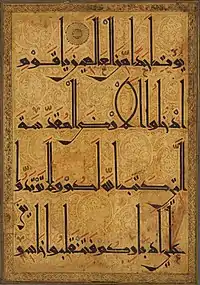 يؤت احدا من العلمين يقوم
ادخلوا الارض المقدسة
التي كتب الله لكم ولا ترتدوا
على ادباركم فتنقلبوا خسرين